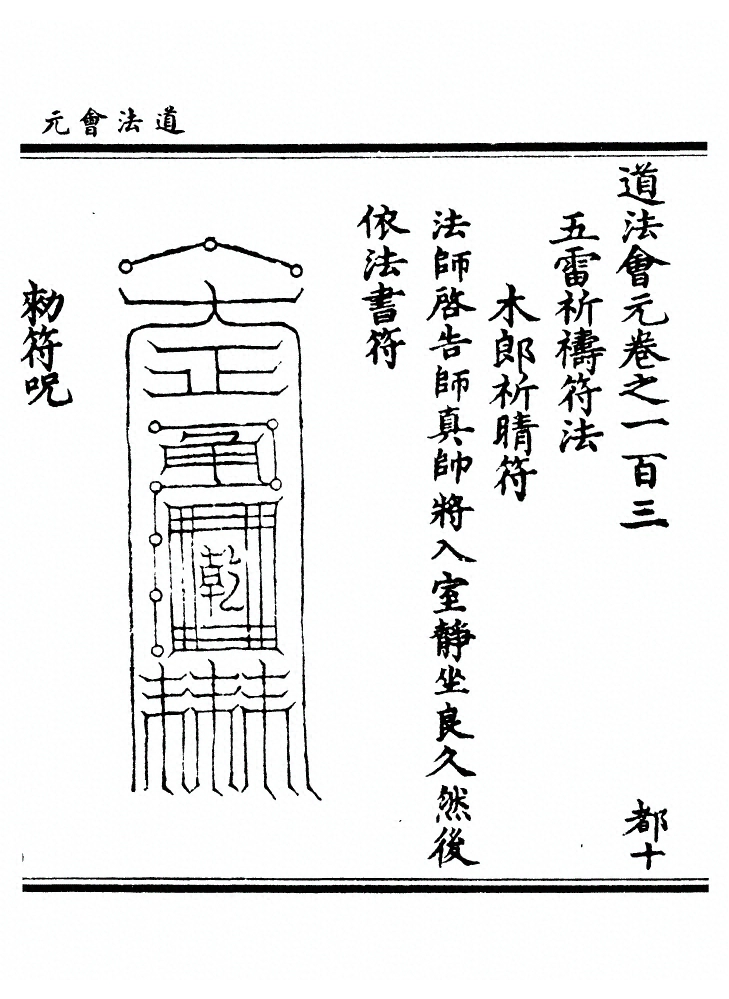 道法會元
道法會元卷之一百三
都十
五雷祈禱符法
木郎祈晴符
法師啓告師真帥將入室靜坐良久然後
依法書符
乾
勑符呪